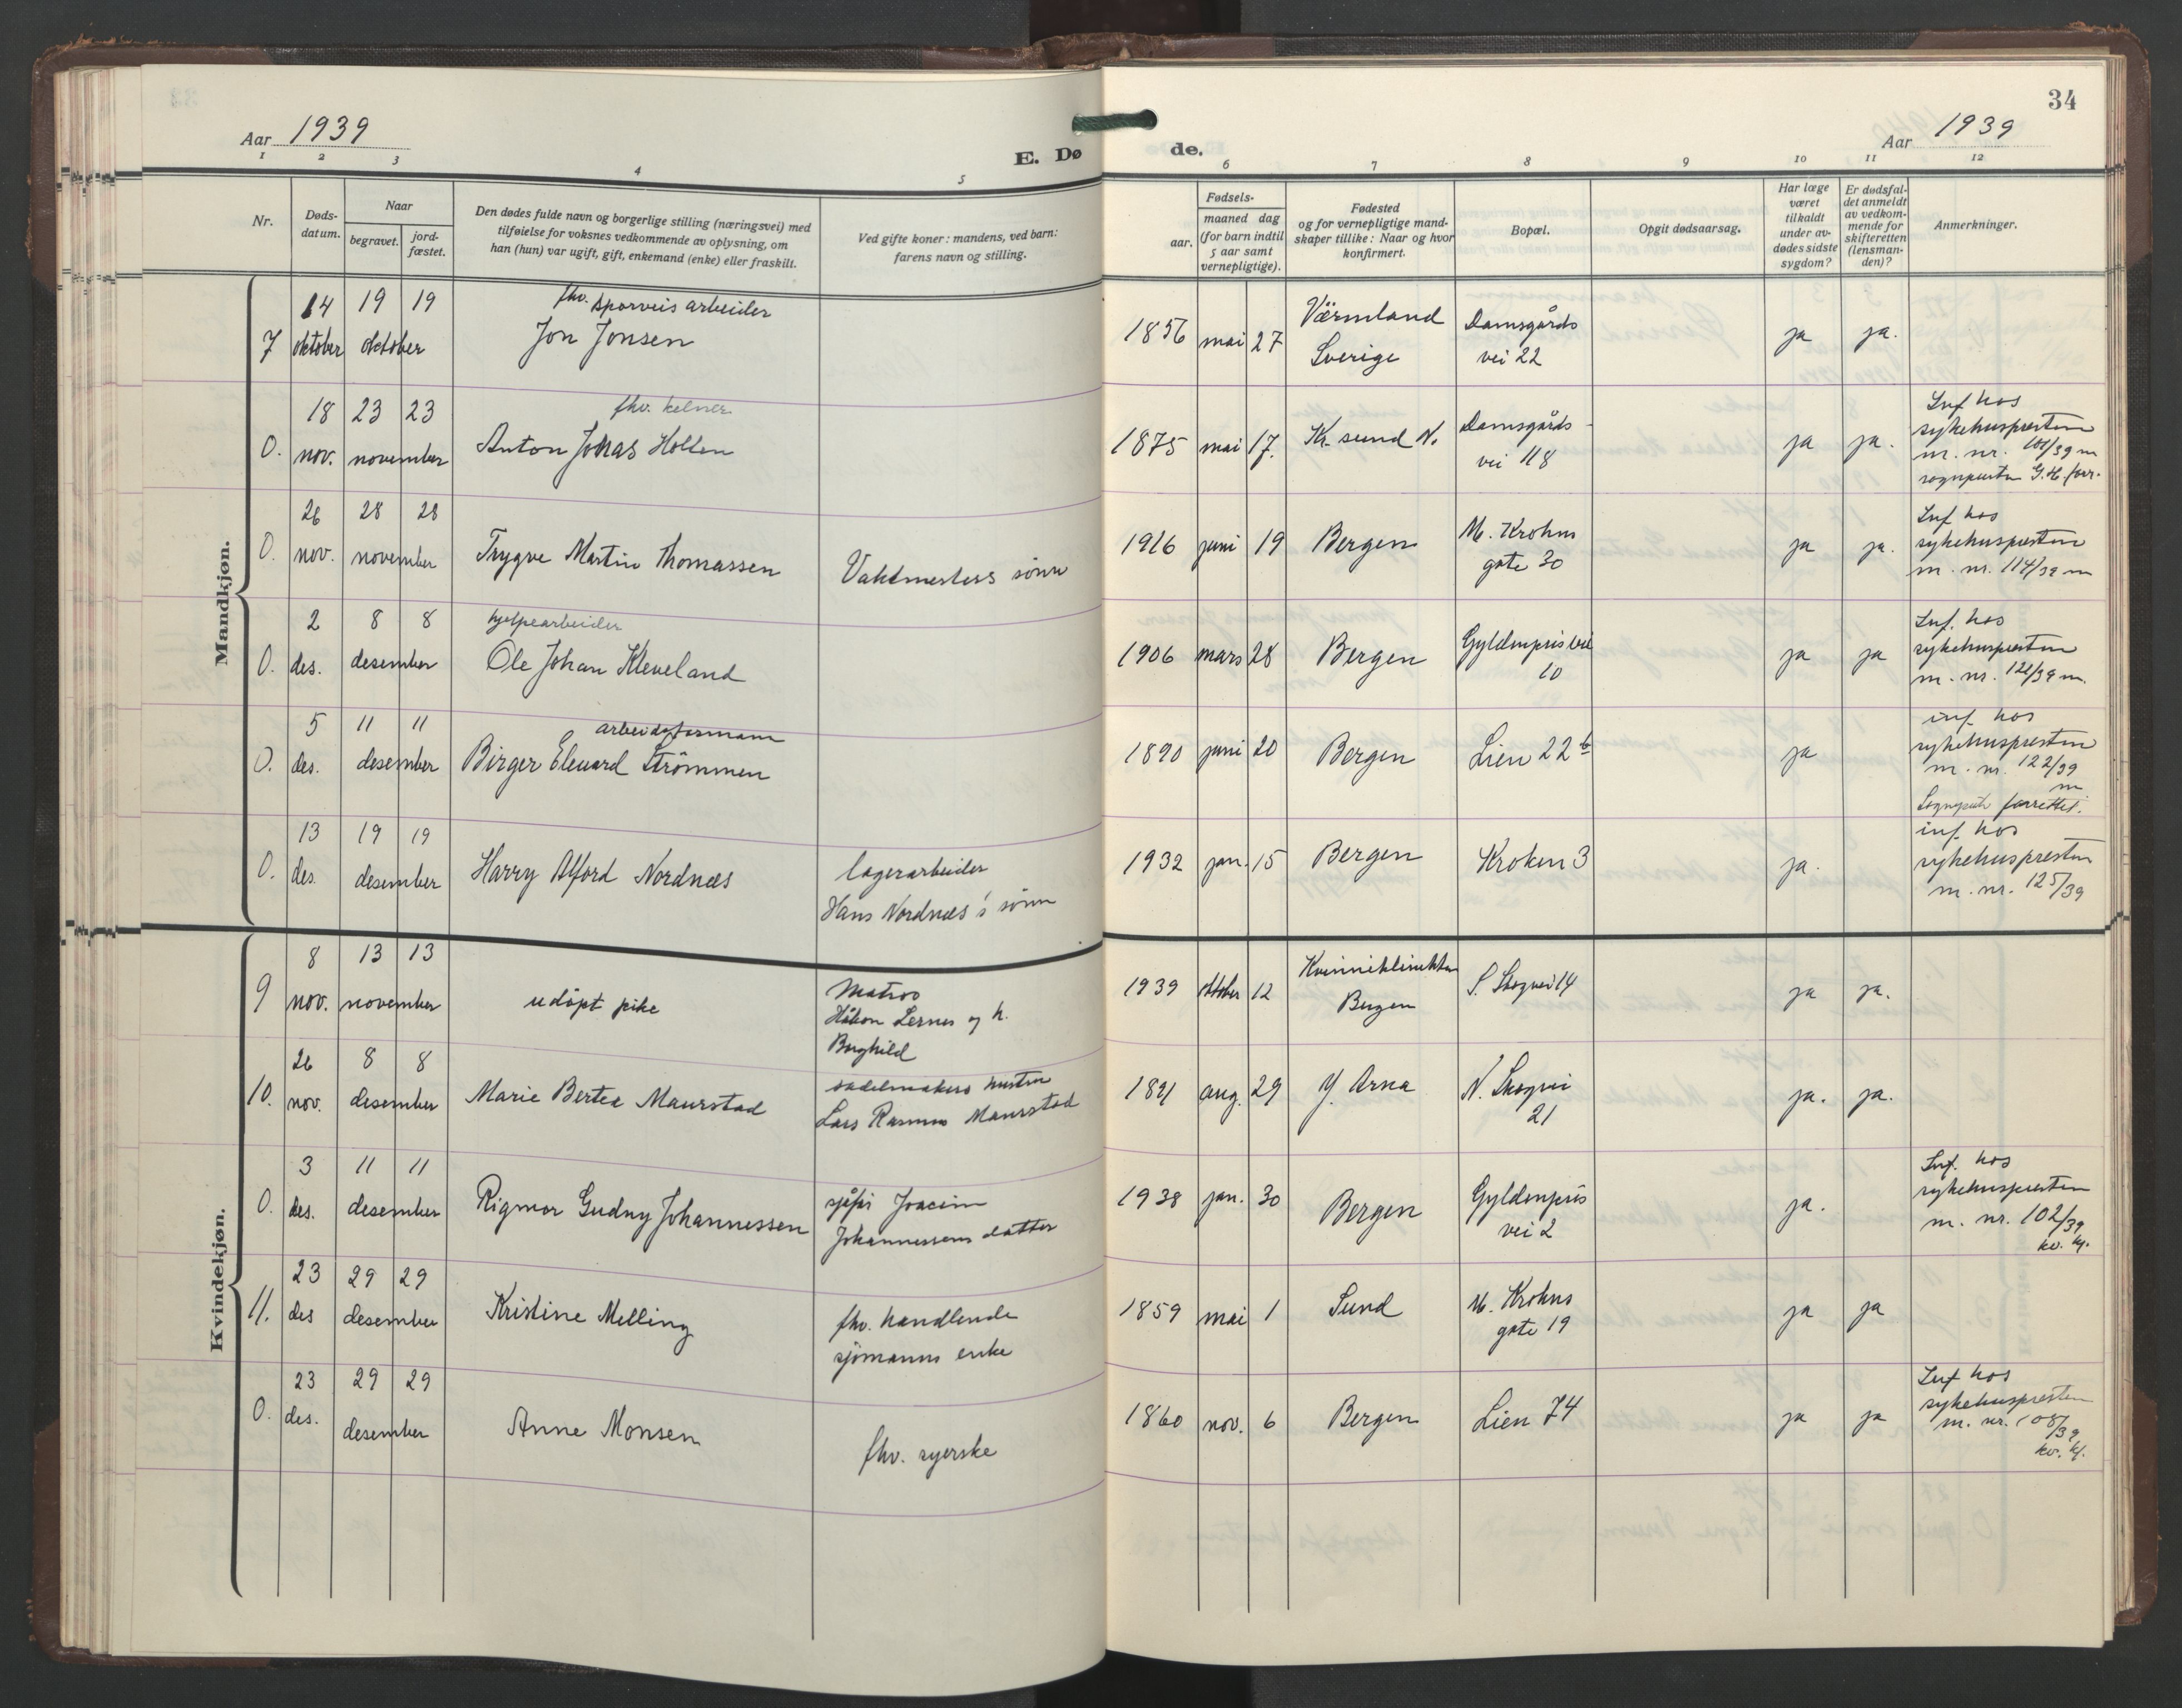 34
Aar 1939
E. Døde.
Aar 1939
1 2 3 4 5 6 7 8 9 10 11 12
Nr.
Døds-
datum.
Naar
begravet.
jord-
fæstet.
Den dødes fulde navn og borgerlige stilling (næringsvei) med
tilføielse for voksnes vedkommende av oplysning, om
han (hun) var ugift, gift, enkemand (enke) eller fraskilt.
Ved gifte koner: mandens, ved barn:
farens navn og stilling.
Fødsels-
aar.
maaned dag
(for barn indtil
5 aar samt
vernepligtige).
Fødested
og for vernepligtige mand-
skaper tillike: Naar og hvor
konfirmert.
Bopæl.
Opgit dødsaarsag.
Har læge
været
tilkaldt
under av-
dødes sidste
sygdom?
Er dødsfal-
det anmeldt
av vedkom-
mende for
skifteretten
(lensman-
den)?
Anmerkninger.
Mandkjøn.
7
14 19 19
oktober oktober
fhv. sporveis arbeider
Jon Jonsen
1856 mai 27
Värmland
Sverige
Damsgårds
vei 22
ja ja.
0.
18 23 23
nov. november
fhv. kelner
Anton Jonas Hollen
1875 mai 17.
Kr. sund N.
Damsgårds-
vei 118
ja ja.
Inf hos
sykehuspresten
m. nr. 101/39 m
sognepresten G.H. forr.
0.
26 28 28
nov. november
Trygve Martin Thomassen
Vaktmesters sønn
1916 juni 19
Bergen
M. Krohns
gate 30
ja ja.
Inf hos
sykehuspresten
m. nr. 114/39 m
0.
2 8 8
des. desember
hjelpearbeider
Ole Johan Kleveland
1906 mars 28
Bergen
Gyldenpris vei
10
ja ja
Inf. hos
sykehuspresten
m. nr. 121/39 m.
0.
5 11 11
des. desember
arbeidsformann
Birger Edvard Strömmen
1890 juni 20
Bergen
Lien 22 b
ja
inf. hos
sykehuspresten
m. nr. 122/39
m.
Sognepr. forrettet.
0.
13 19 19
des. desember
Harry Alford Nordnæs
lagerarbeider
Hans Nordnæs's sønn
1932 jan. 15
Bergen
Kroken 3
ja.
inf. hos
sykehuspresten
m. nr. 125/39
Kvindekjøn.
9
8 13 13
nov. november
udøpt pike
Matros
Håkon Lernes og h.
Borghild
1939 oktober 12
Kvinneklinikken
Bergen
S. Skogvei 14
ja ja.
10.
26 8 8
nov. desember
Marie Bertea Maurstad
sadelmakers hustru
Lars Rasmus Maurstad
1891 aug. 29
Y. Arna
N. Skogvei
21
ja. ja.
0.
3 11 11
des. desember
Rigmor Gudny Johannessen
sjåfør Joacim
Johannessens datter
1938 jan. 30
Bergen
Gyldenpris
vei 2
ja.
Inf. hos
sykehuspresten
m. nr. 102/39
kv. kj.
11.
23 29 29
des desember
Kristine Melling
fhv. handlende
sjømanns enke
1859 mai 1
Sund
M. Krohns
gate 19
ja ja
0.
23 29 29
des. desember
Anne Monsen
fhv. syerske
1860 nov. 6
Bergen
Lien 74
ja ja
Inf hos
sykehuspresten
m. nr. 108/39
kv. kj.